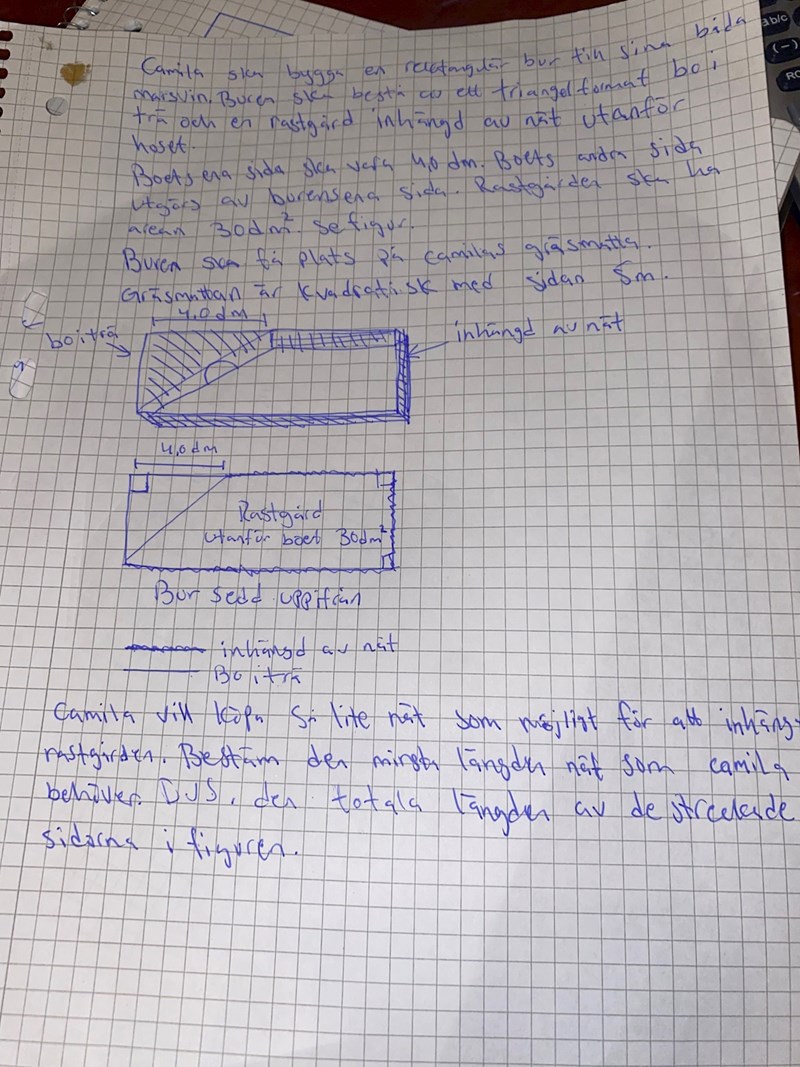 Camila ska bygga en rektangulär bur till sina båda
marsvin. Buren ska bestå av ett triangelformat bo i
trä och en rastgård inhängd av nät utanför
huset.
Boets ena sida ska vara 4,0 dm. Boets andra sida
utgörs av burens ena sida. Rastgården ska ha
arean 30 dm². Se figur.
Buren ska få plats på camilas gräsmatta.
Gräsmattan är kvadratisk med sidan 5m.
4,0 dm
bo i trä
inhängd av nät
4,0 dm
Rastgård
utanför boet 30dm²
Bur sedd uppifrån
inhängd av nät
Bo i trä
Camila vill köpa så lite nät som möjligt för att inhäng-
rastgården. Bestäm den minsta längden nät som camila
behöver. DVS, den totala längden av de streckade
sidorna i figuren.